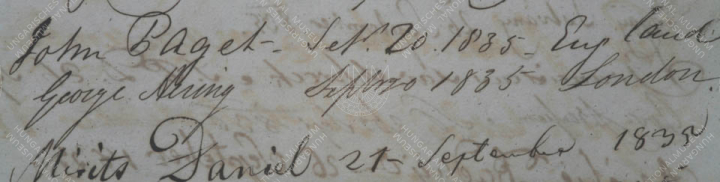 John Paget - Set. 20. 1835 - England
George Hering Sept 20 1835 London.
Mirits Daniel 21 September 1835